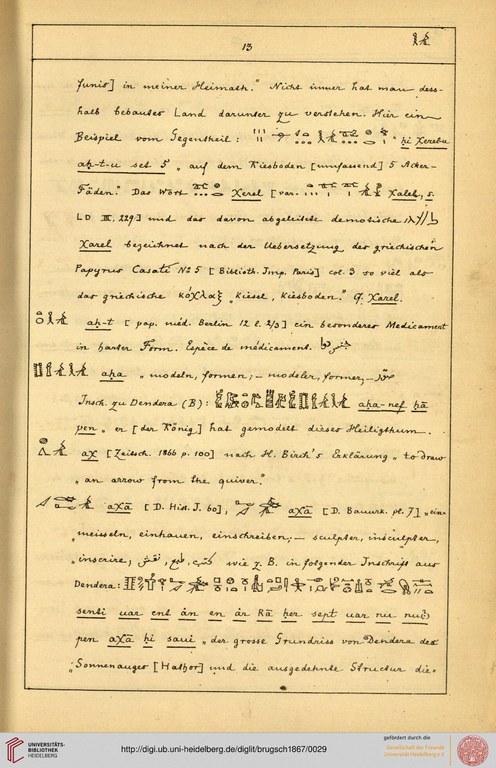 13
funis] in meiner Heimath." Nicht immer hat man dess-
halb bebautes Land darunter zu verstehen. Hier ein
Beispiel vom Gegentheil : ḥi Xerebu
aḥ-t-u set 5 „ auf dem Kiesboden [umfassend] 5 Acker-
Fäden." Das Wort Xerel [var. Xaleh, s.
LD III, 229.] und das davon abgeleitete demotische
Xarel bezeichnet nach der Uebersetzung des griechischen
Papyrus Casati No 5 [Biblioth. Imp. Paris] col. 3 so viel als
das griechische κόχλαξ „Kiesel, Kiesboden." G. Xarel.
aḥ-t [pap. méd. Berlin 12 l. 2/3] ein besonderes Medicament
in harter Form. Espèce de médicament.
aḥa „ modeln, formen; – modeler, former; –
Insch. zu Dendera (B) : aḥa-nef ḥā
pen „ er [der König] hat gemodelt dieses Heiligthum.
ax [Zeitsch. 1866 p. 100] nach H. Birch's Erklärung „ to draw
„ an arrow from the quiver."
axā [D. Hist. I. 60], axā [D. Bauurk. pl. 7] „ein-
„meisseln, einhauen, einschreiben; – sculpter, insculpter,
„inscrire, wie z. B. in folgender Inschrift aus
Dendera :
senti uar ent ān en ār Rā ḥer sept uar nu nui
pen axā ḥi saui „ der grosse Grundriss von Dendera des
„Sonnenauges [Hathor] und die ausgedehnte Structur die-
UNIVERSITÄTS-
BIBLIOTHEK
HEIDELBERG
http://digi.ub.uni-heidelberg.de/diglit/brugsch1867/0029
gefördert durch die
Gesellschaft der Freunde
Universität Heidelberg e.V.